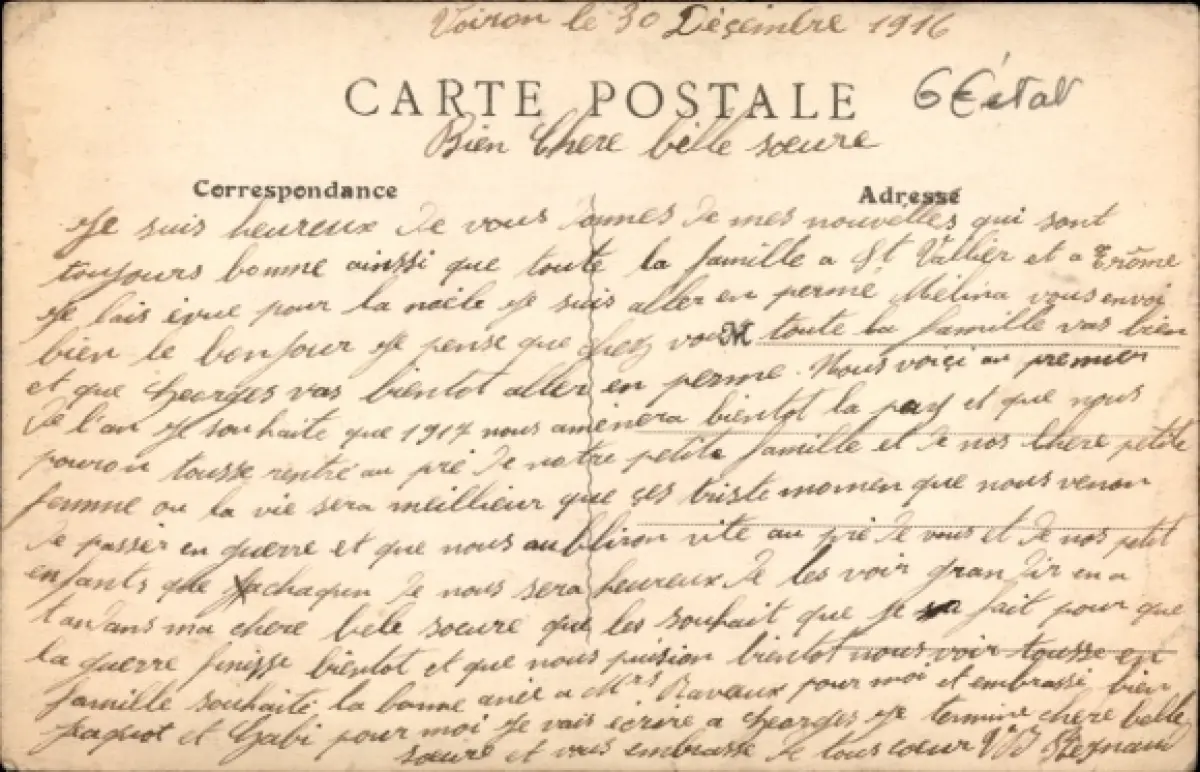 Voiron le 30 Déçembre 1916
CARTE POSTALE
6€ état
Bien Chere belle soeure
Correspondance
Adresse
Je suis heureux de vous donnes de mes nouvelles qui sont
toujours bonne ainssi que toute la famille a St Vallier et a Érôme
Je lais évue pour la noële Je suis aller en permé Mélina vous envoi
bien le bonjour Je pense que chez vou toute la famille vas bien
et que Georges vas bientot aller en perme. Nous voiçi au premier
de l'an Je souhaite que 1917 nous amènera bientot la pay et que nous
pouron tousse rentré au pré de notre petite famille et de nos chere petite
femme ou la vie sera meillieur que çes triste momen que nous venon
de passer en guerre et que nous aubliron vite au pré de vous et de nos petit
enfants que chaqun de nous sera heureux de les voir grandir en a
tandans ma chere bele soeure que les souhait que je fait pour que
la guerre finisse bientot et que nous puision bientot nous voir tousse en
famille souhaité la bonne anée a Mrs Raveaux pour moi et embrassé bien
Jaquot et Gabi pour moi Je vais écrire a Georges Je termine chere belle
soeure et vous embrasse de tous coeur